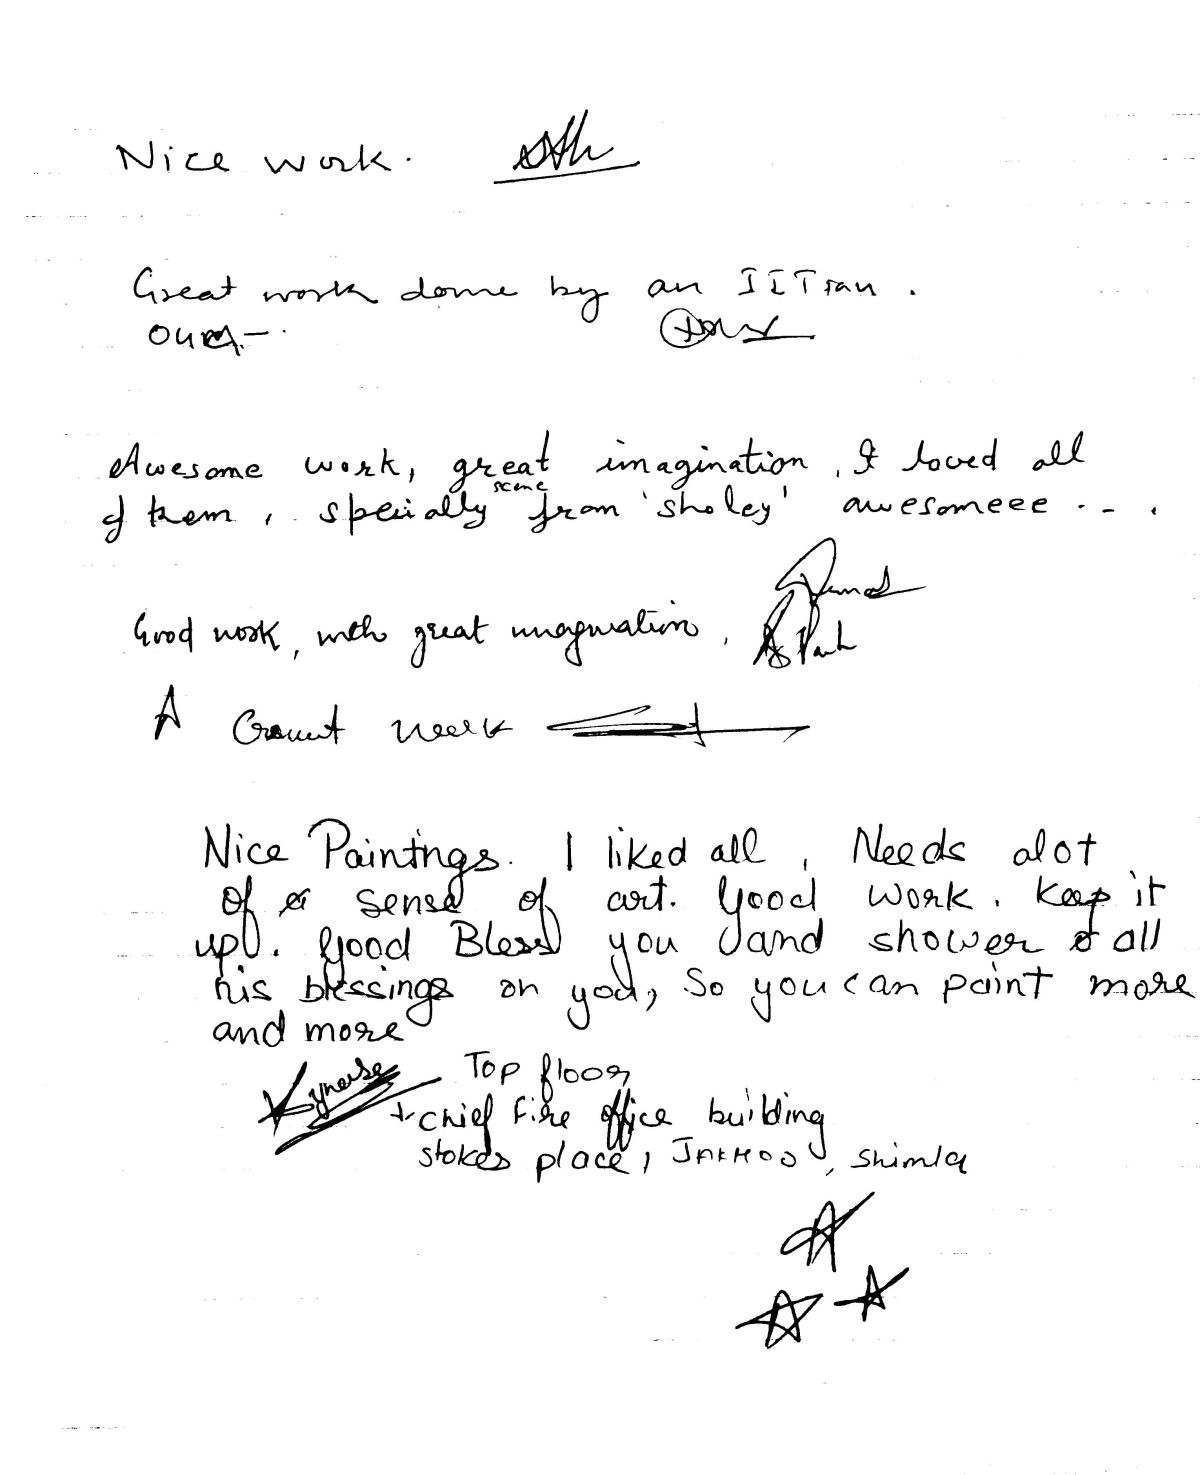 Nice work.
Great work done by an IITian.
Awesome work, great imagination, I loved all
of them, specially scene from 'sholey' awesomeee ...
Good work, with great imagination,
A Great work
Nice Paintings. I liked all, Needs alot
of sense of art. Good work. Keep it
up. Good Bless you and shower all
his blessings on you, So you can paint more
and more
Top floor,
chief Fire office building
stokes place, JAKHOO, Shimla